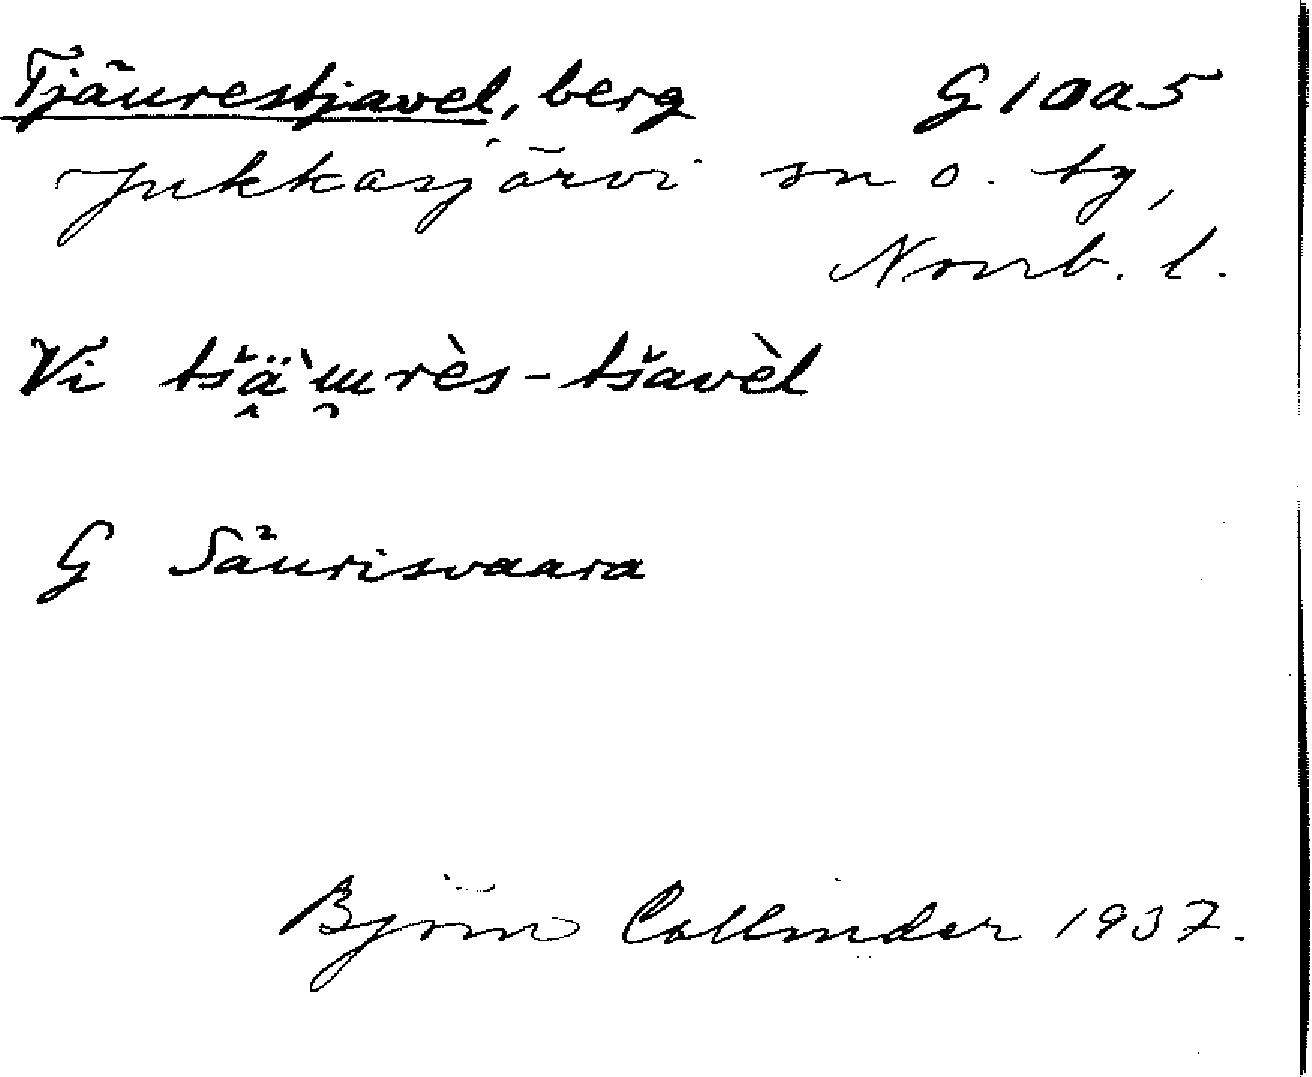 Tjäurestjavel, berg G10a5
Jukkasjärvi sn o. tg,
Norrb. l.
Vi tšä̭̀ɯrès-tšavèl
G Säurisvaara
Björn Collinder 1937.